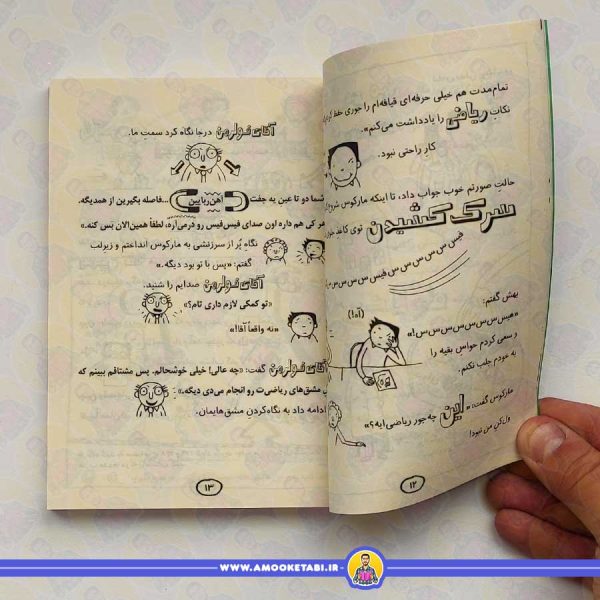 تمام‌مدت هم خیلی حرفه‌ای قیافه‌ام را جوری حفظ
نکاتِ ریاضی را یادداشت می‌کنم».
کارِ راحتی نبود.
حالتِ صورتم خوب جواب داد، تا اینکه مارکوس شروع
سرک کشیدن توی کاغذ
فیس س س س فیس س س س س س
بهش گفتم:
«هیس‌س‌س‌س‌س‌س‌س‌س!»
(آه!)
و سعی کردم حواسِ بقیه را
به خودم جلب نکنم.
مارکوس گفت: «این چه جور ریاضی‌ایه؟»
ول‌کنِ من نبود!
۱۲
آقای فولرمن درجا نگاه کرد سمتِ ما.
شما دو تا عین یه جفت آهن‌ربایین ...فاصله بگیرین از همدیگه.
هر کی هم داره اون صدای فیس‌فیس رو درمی‌آره، لطفاً همین‌الان بس کنه.»
نگاهِ پُر از سرزنشی به مارکوس انداختم و زیرلب
گفتم: «پس با تو بود دیگه.»
آقای فولرمن صدایم را شنید.
«تو کمکی لازم داری تام؟»
«نه واقعاً آقا!»
آقای فولرمن گفت: «چه عالی! خیلی خوشحالم. پس مشتاقم ببینم که
مشق‌های ریاضی‌ت رو انجام می‌دی دیگه.»
ادامه داد به نگاه‌کردنِ مشق‌هایمان.
۱۳
WWW.AMOOKETABI.IR